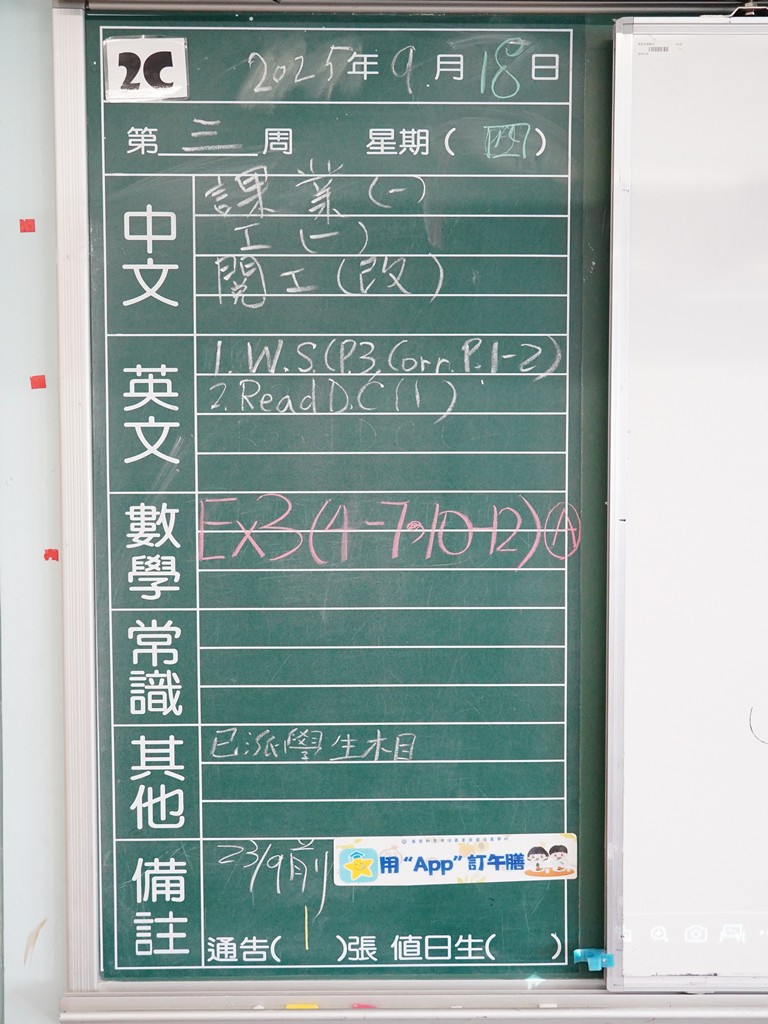 2C 2025年9月18日
第三周 星期(四)
中文
課業(一)
工(一)
閱工(改)
英文
1. W.S.(P3. Corr. P.1-2)
2. Read D.C(1)
數學
Ex3(4-7, 10-12)Ⓐ
常識
其他
已派學生相
備註
23/9前
用“App”訂午膳
通告(1)張 值日生( )